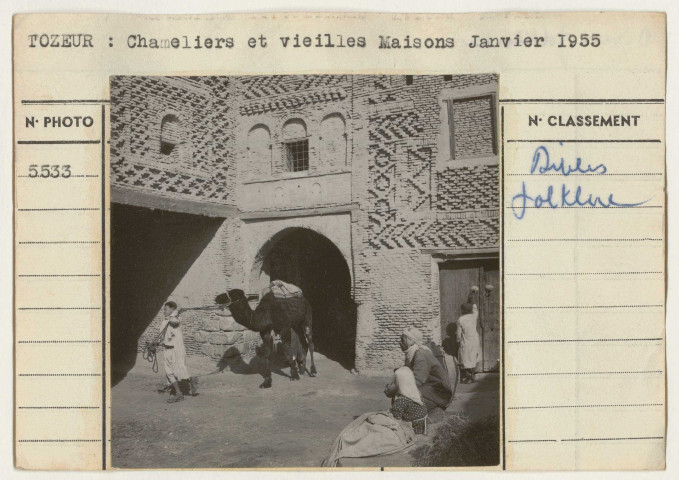 TOZEUR : Chameliers et vieilles Maisons Janvier 1955
N· PHOTO
N· CLASSEMENT
5533
Bibles
folklore